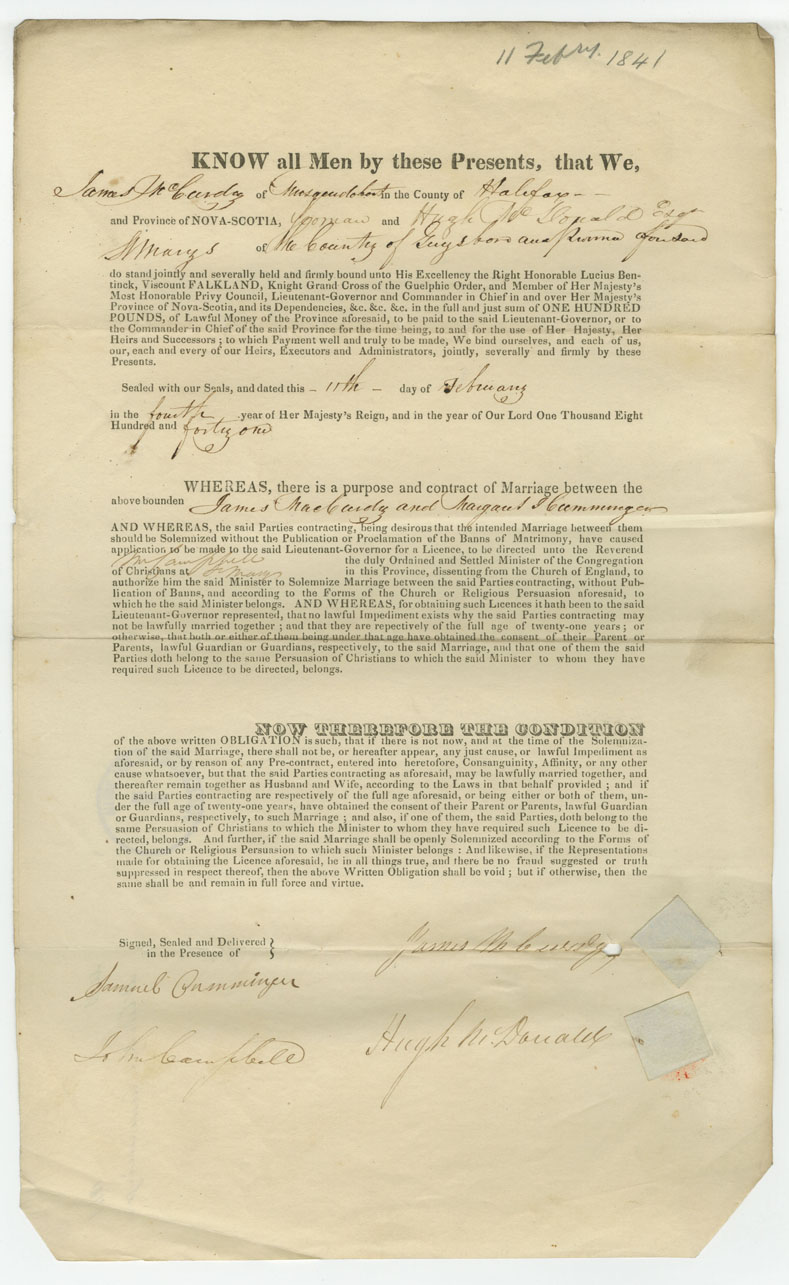 11 Febry. 1841
KNOW all Men by these Presents, that We,
James McCurdy of Musquodoboit in the County of Halifax - -
and Province of NOVA-SCOTIA, yeoman and Hugh McDonald Esqr
St Marys of the County of Guysboro and Province aforesaid
do stand jointly and severally held and firmly bound unto His Excellency the Right Honorable Lucius Ben-
tinck, Viscount FALKLAND, Knight Grand Cross of the Guelphic Order, and Member of Her Majesty's
Most Honorable Privy Council, Lieutenant-Governor and Commander in Chief in and over Her Majesty's
Province of Nova-Scotia, and its Dependencies, &c. &c. &c. in the full and just sum of ONE HUNDRED
POUNDS, of Lawful Money of the Province aforesaid, to be paid to the said Lieutenant-Governor, or to
the Commander in Chief of the said Province for the time being, to and for the use of Her Hajesty, Her
Heirs and Successors ; to which Payment well and truly to be made, We bind ourselves, and each of us,
our, each and every of our Heirs, Executors and Administrators, jointly, severally and firmly by these
Presents.
Sealed with our Seals, and dated this - 11th - day of February
in the fourth year of Her Majesty's Reign, and in the year of Our Lord One Thousand Eight
Hundred and forty one
WHEREAS, there is a purpose and contract of Marriage between the
above bounden James MacCurdy and Margaret Cumminger
AND WHEREAS, the said Parties contracting, being desirous that the intended Marriage between them
should be Solemnized without the Publication or Proclamation of the Banns of Matrimony, have caused
application to be made to the said Lieutenant-Governor for a Licence, to be directed unto the Reverend
Campbell the duly Ordained and Settled Minister of the Congregation
of Christians at St Marys in this Province, dissenting from the Church of England, to
authorize him the said Minister to Solemnize Marriage between the said Parties contracting, without Pub-
lication of Banns, and according to the Forms of the Church or Religious Persuasion aforesaid, to
which he the said Minister belongs. AND WHEREAS, for obtaining such Licences it hath been to the said
Lieutenant-Governor represented, that no lawful Impediment exists why the said Parties contracting may
not be lawfully married together ; and that they are repectively of the full age of twenty-one years ; or
otherwise, that both or either of them being under that age have obtained the consent of their Parent or
Parents, lawful Guardian or Guardians, respectively, to the said Marriage, and that one of them the said
Parties doth belong to the same Persuasion of Christians to which the said Minister to whom they have
required such Licence to be directed, belongs.
NOW THEREFORE THE CONDITION
of the above written OBLIGATION is such, that if there is not now, and at the time of the Solemniza-
tion of the said Marriage, there shall not be, or hereafter appear, any just cause, or lawful Impediment as
aforesaid, or by reason of any Pre-contract, entered into heretofore, Consanguinity, Affinity, or any other
cause whatsoever, but that the said Parties contracting as aforesaid, may be lawfully married together, and
thereafter remain together as Husband and Wife, according to the Laws in that behalf provided ; and if
the said Parties contracting are respectively of the full age aforesaid, or being either or both of them, un-
der the full age of twenty-one years, have obtained the consent of their Parent or Parents, lawful Guardian
or Guardians, respectively, to such Marriage ; and also, if one of them, the said Parties, doth belong to the
same Persuasion of Christians to which the Minister to whom they have required such Licence to be di-
rected, belongs. And further, if the said Marriage shall be openly Solemnized according to the Forms of
the Church or Religious Persuasion to which such Minister belongs : And likewise, if the Representations
made for obtaining the Licence aforesaid, be in all things true, and there be no fraud suggested or truth
suppressed in respect thereof, then the above Written Obligation shall be void ; but if otherwise, then the
same shall be and remain in full force and virtue.
Signed, Sealed and Delivered }
in the Presence of
James McCurdy
Samuel Cumminger
Hugh McDonald
John Campbell